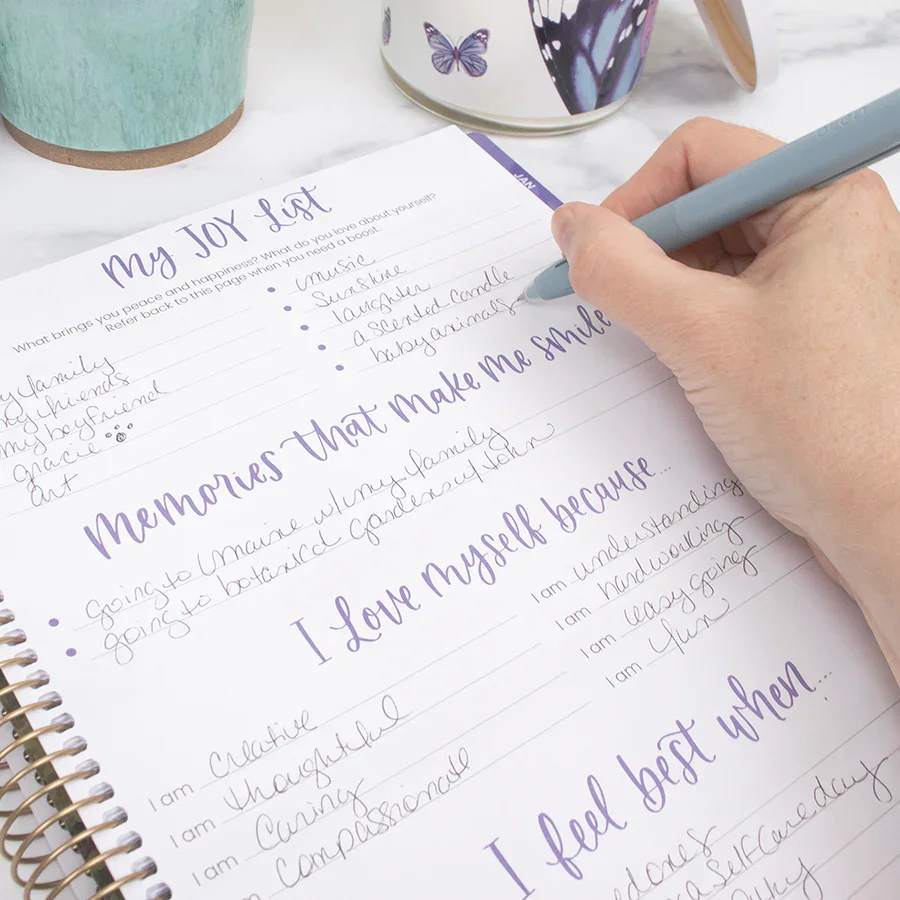 My JOY List
What brings you peace and happiness? What do you love about yourself?
Refer back to this page when you need a boost.
JAN
my family
my friends
my boyfriend
gracie
art
music
Sunshine
laughter
a scented candle
baby animals
Memories that make me smile
going to Maine w/ my family
going to botanical gardens w/ John
I Love Myself because...
I am Creative
I am thoughtful
I am Caring
am compassionate
I am understanding
I am hardworking
I am easy going
I am fun
I feel best when...
a Self Care day